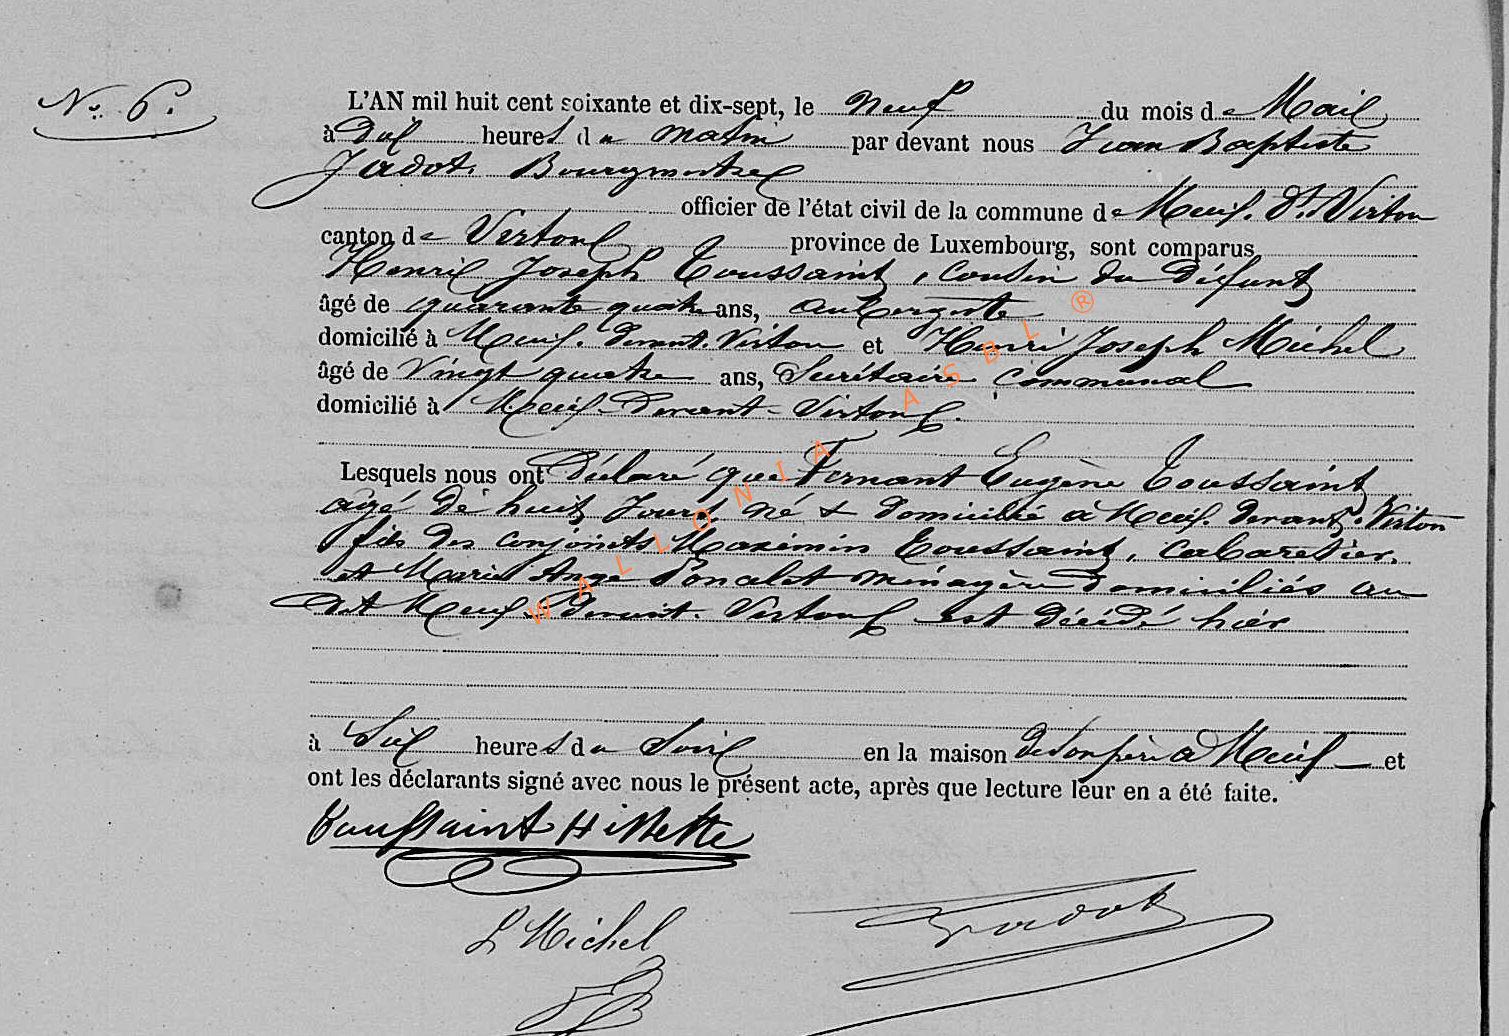 N° 6.
L'AN mil huit cent soixante et dix-sept, le neuf du mois de Mai
à dix heures du matin par devant nous Jean Baptiste
Jadot. Bourgmestre
officier de l'état civil de la commune de Meix. dt. Virton
canton de Virton province de Luxembourg, sont comparus
Henri Joseph Toussaint, cousin du défunt
âgé de quarante quatre ans, aubergiste
domicilié à Meix. devant. Virton et Henri Joseph Michel
âgé de vingt quatre ans, Secrétaire communal
domicilié à Meix-Devant-Virton.
Lesquels nous ont déclaré que Fernant Eugène Toussaint
agé de huit Jours né & domicilié à Meix. devant. Virton
fils des conjoints Maximin Toussaint, cabaretier.
et Marie Ange Poncelet ménagère domiciliés au
dit Meix. devant. Virton est décédé hier
à Six heures du Soir en la maison de son père à Meix et
ont les déclarants signé avec nous le présent acte, après que lecture leur en a été faite.
Toussaint
Michel
Jadot
WALLONIA ASBL ®